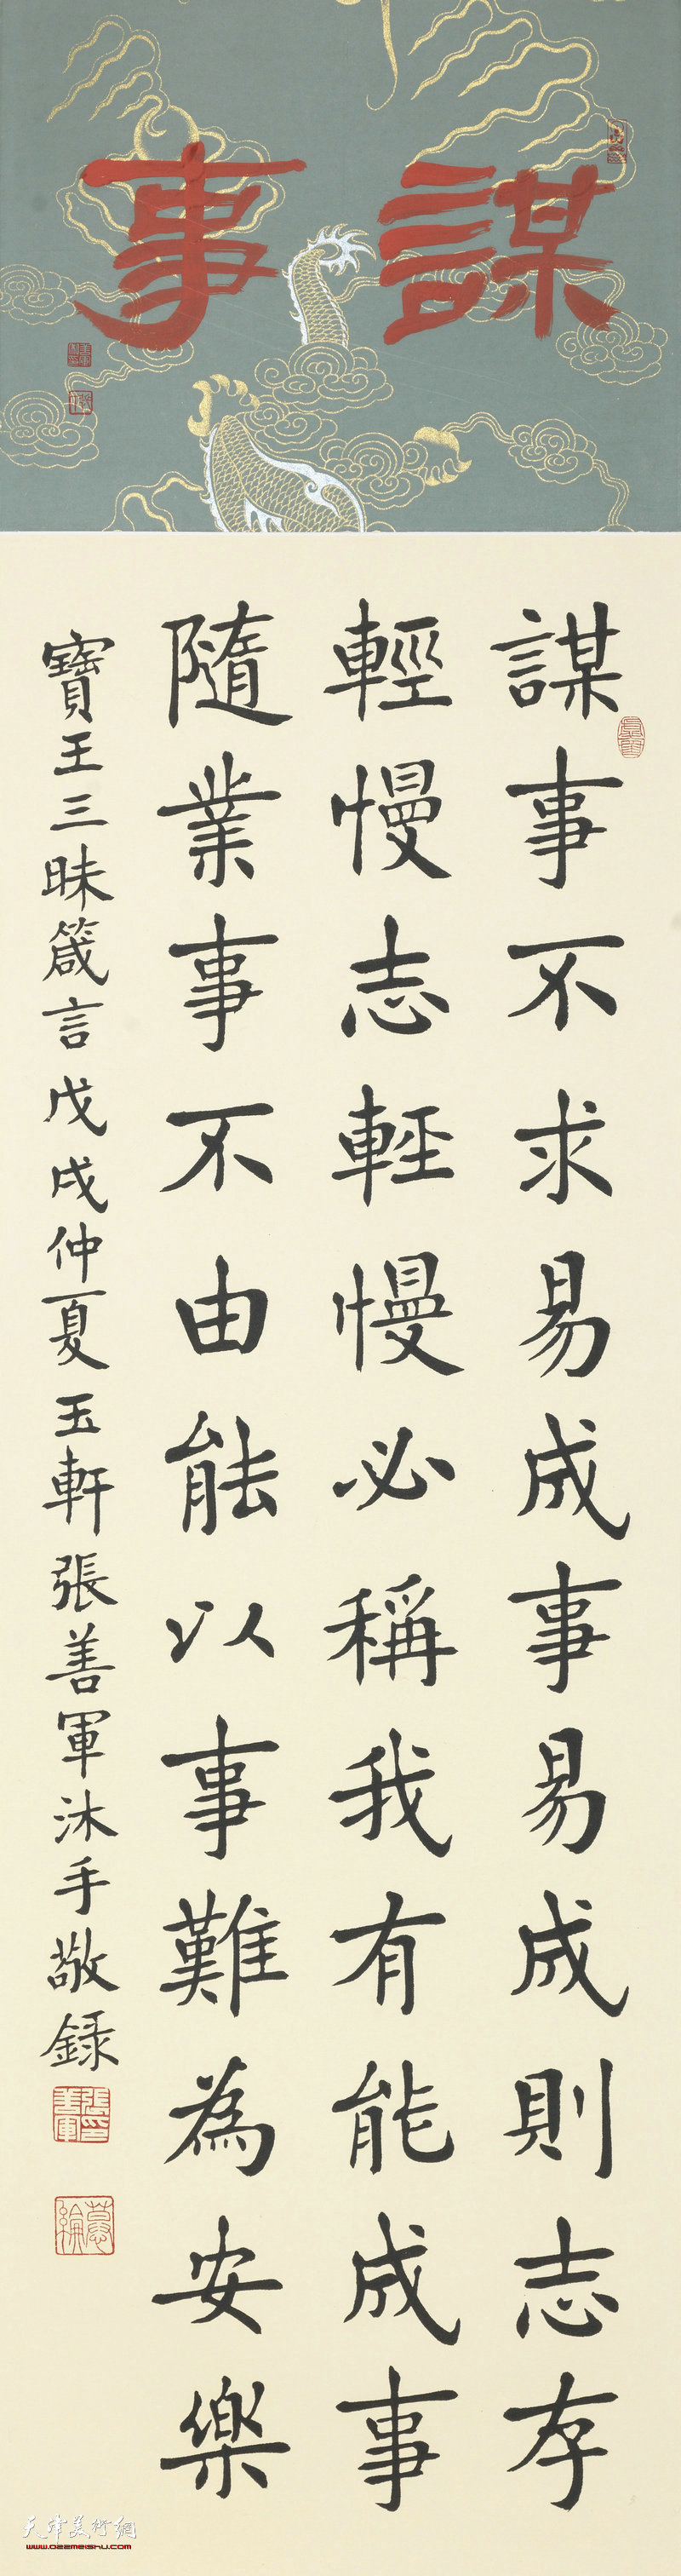 謀事
謀事不求易成事易成則志存
輕慢志輕慢必稱我有能成事
隨業事不由能以事難為安樂
寶王三昧箴言戊戌仲夏玉軒張善軍沐手敬録
張善軍印
天津美術網
www.022meishu.com